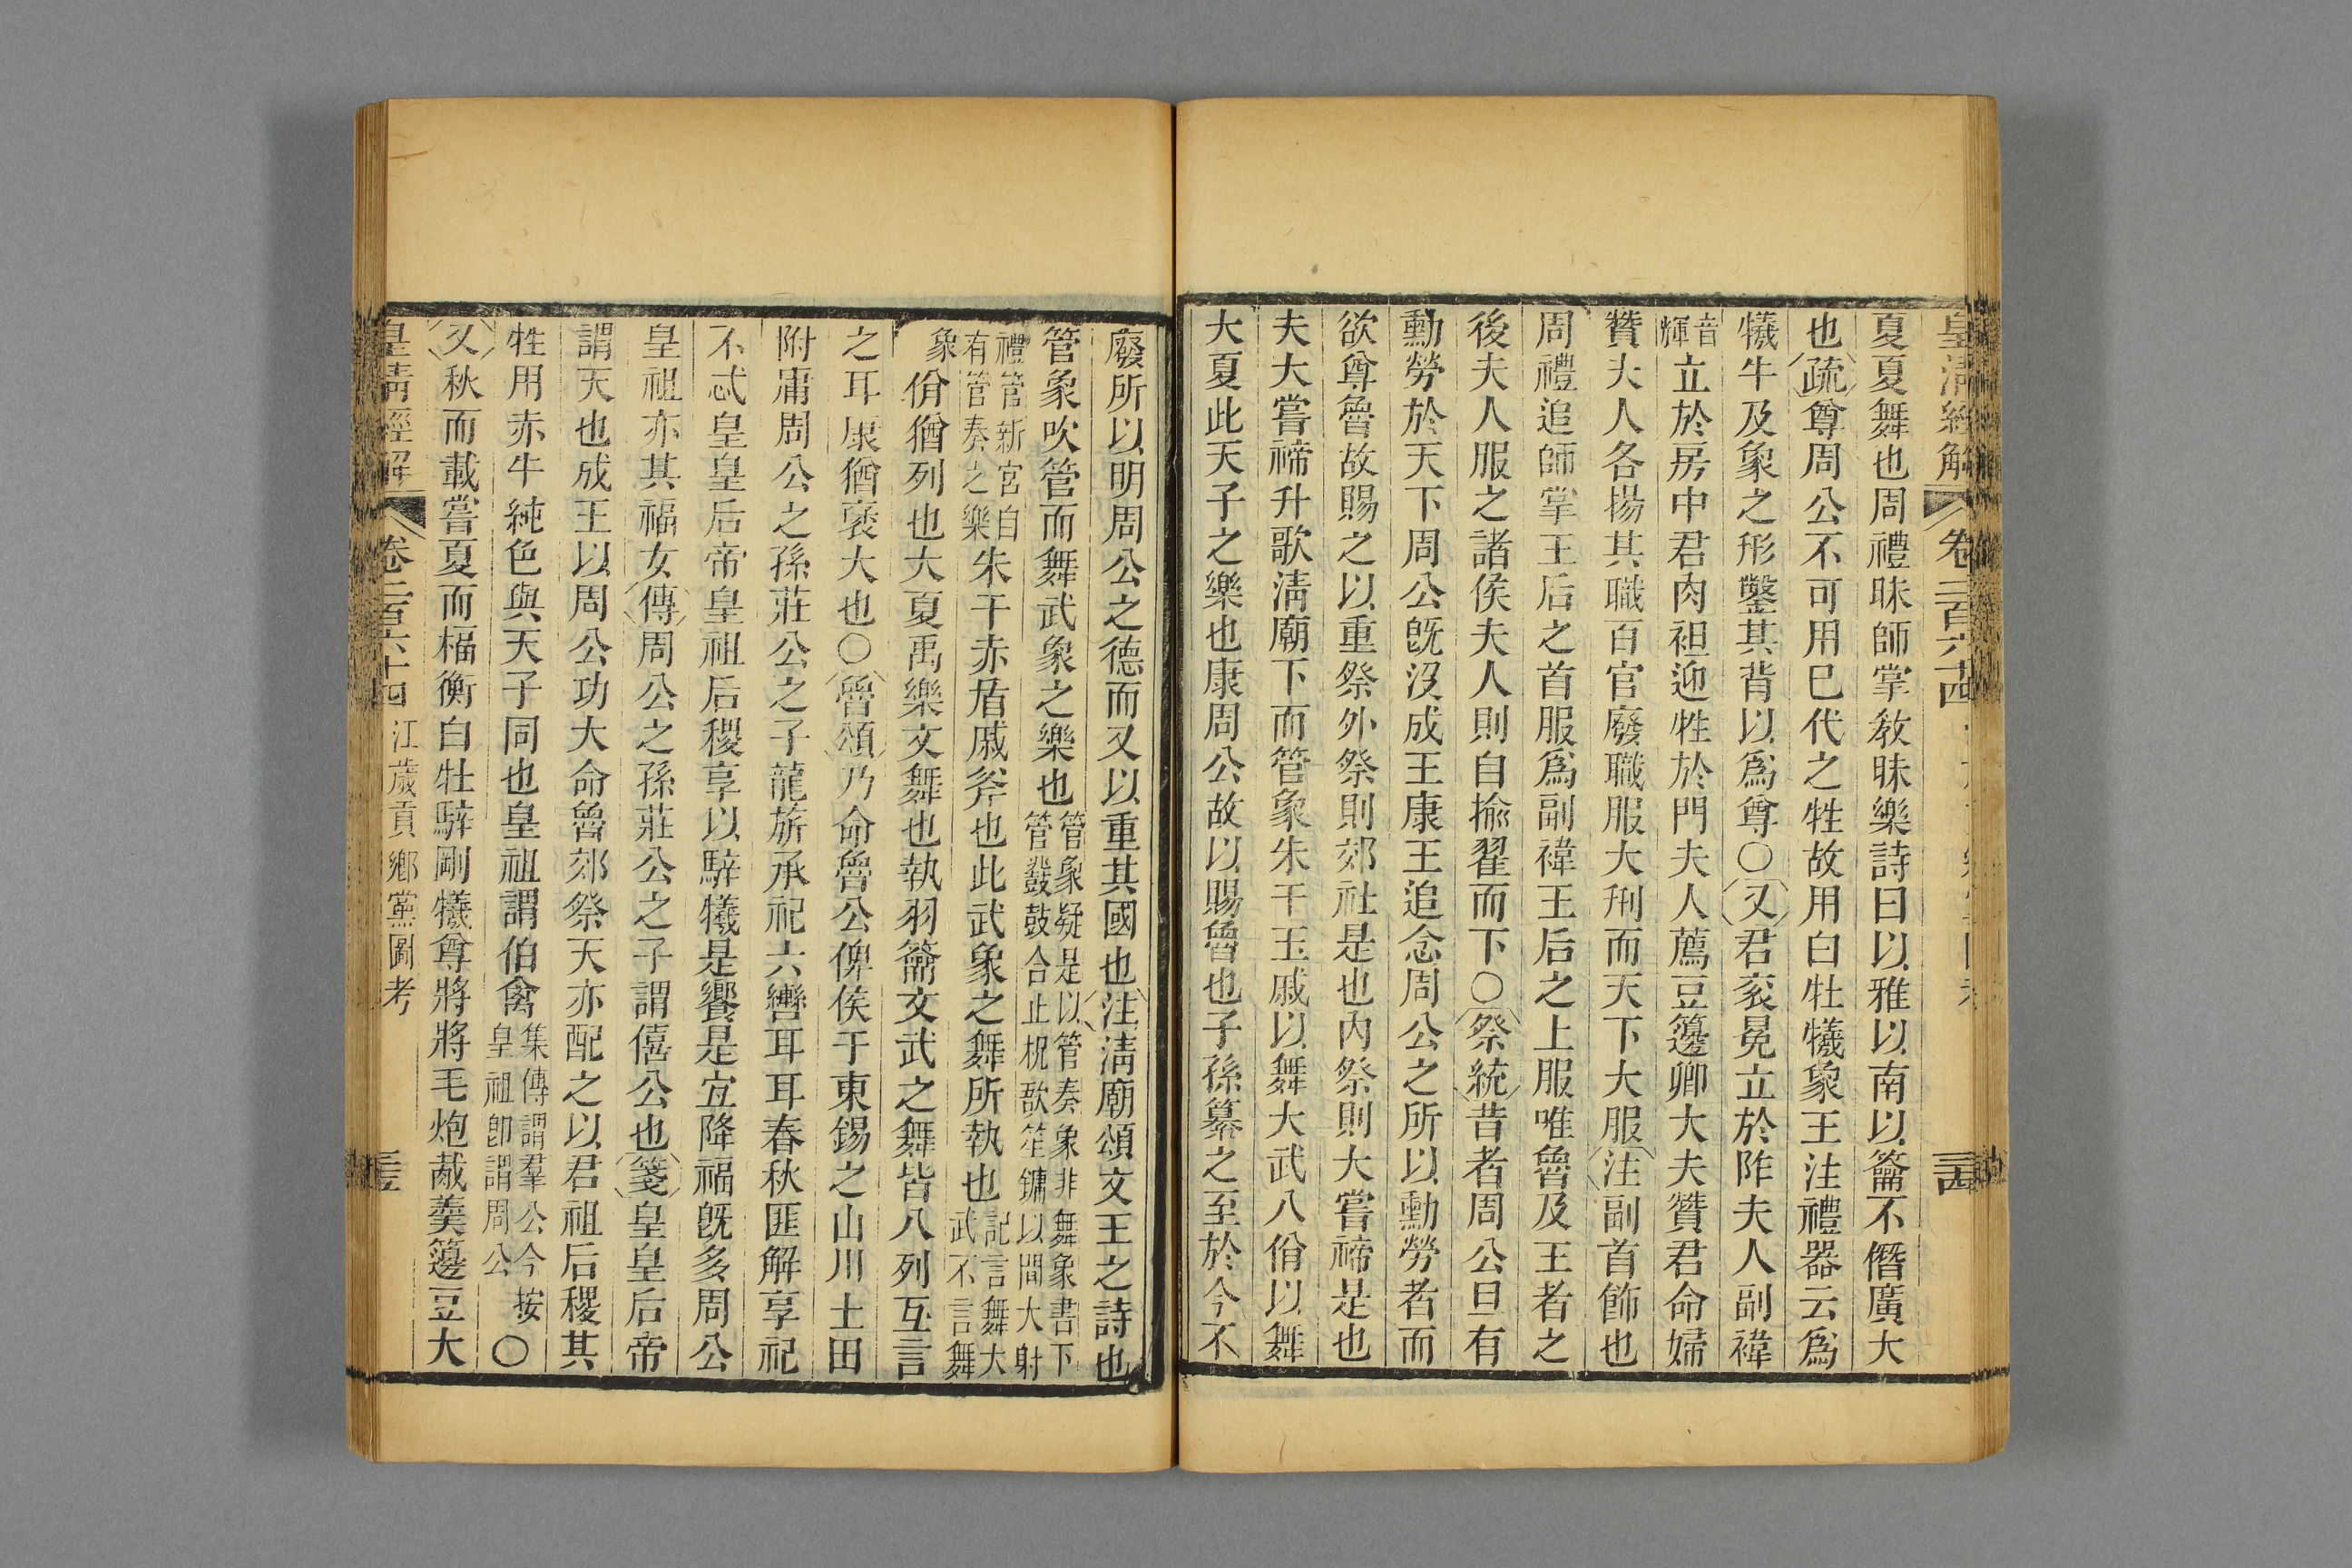 皇淸經解 卷二百六十四 三十四
夏夏舞也周禮昧師掌敎昧樂詩曰以雅以南以籥不僭廣大
也疏尊周公不可用巳代之牲故用白牡犧象王注禮器云爲
犧牛及象之形鑿其背以爲尊〇又君衮冕立於阼夫人副褘
音輝立於房中君肉袒迎牲於門夫人薦豆籩卿大夫贊君命婦
贊夫人各揚其職百官廢職服大刑而天下大服注副首飾也
周禮追師掌王后之首服爲副褘王后之上服唯魯及王者之
後夫人服之諸侯夫人則自揄翟而下〇祭統昔者周公旦有
勳勞於天下周公旣沒成王康王追念周公之所以勳勞者而
欲尊魯故賜之以重祭外祭則郊社是也内祭則大嘗禘是也
夫大嘗禘升歌淸廟下而管象朱干玉戚以舞大武八佾以舞
大夏此天子之樂也康周公故以賜魯也子孫纂之至於今不
廢所以明周公之德而又以重其國也注淸廟頌文王之詩也
管象吹管而舞武象之樂也管象疑是以管奏象非舞象書下管鼗鼓合止柷敔笙鏞以間大射
禮管新宮自有管奏之樂朱干赤盾戚斧也此武象之舞所執也記言舞大武不言舞
象佾猶列也大夏禹樂文舞也執羽籥文武之舞皆八列互言
之耳康猶襃大也〇魯頌乃命魯公俾侯于東錫之山川土田
附庸周公之孫莊公之子龍旂承祀六轡耳耳春秋匪解享祀
不忒皇皇后帝皇祖后稷享以騂犧是饗是宜降福旣多周公
皇祖亦其福女傳周公之孫莊公之子謂僖公也箋皇皇后帝
謂天也成王以周公功大命魯郊祭天亦配之以君祖后稷其
牲用赤牛純色與天子同也皇祖謂伯禽集傳謂羣公今按皇祖卽謂周公〇
又秋而載嘗夏而楅衡白牡騂剛犧尊將將毛炰胾羹籩豆大
皇淸經解 卷二百六十四 江歲貢鄉黨圖考 三十五